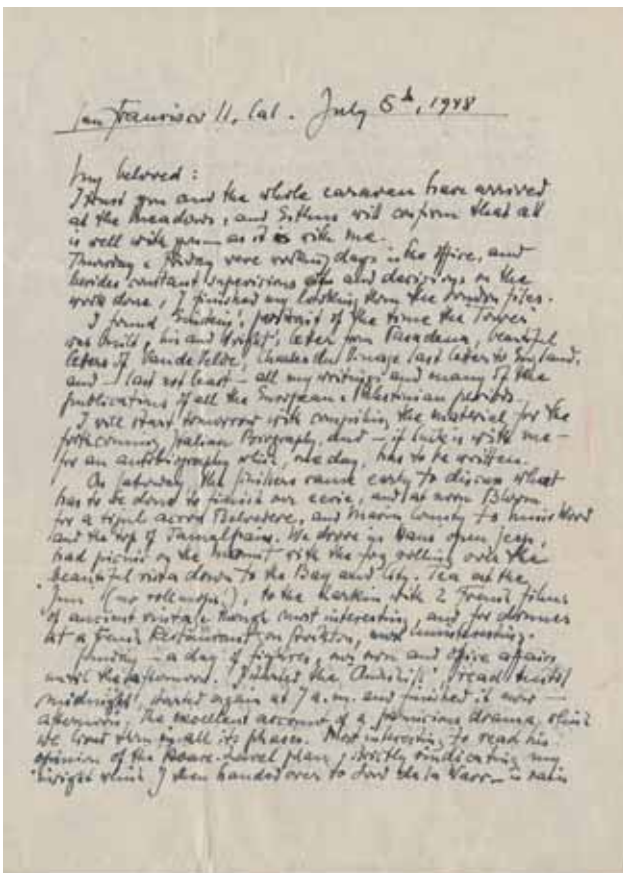 San Francisco 11, Cal. July 5th, 1948
My beloved:
I trust you and the whole caravan have arrived
at the meadows, and Esther will confirm that all
is well with you — as it is with me.
Thursday & Friday were working days in the office, and
besides constant supervisions and decisions on the
work done, I finished my looking thru the London files.
I found Einstein's portrait of the time the Tower
was built, his and Wright's letter from Pasadena, beautiful
letters of Vandevelde, last letter to England,
and — last not least — all my writings and many of the
publications of all the European & Palestinian periods.
I will start tomorrow with compiling the material for the
forthcoming Italian Biography, and — if luck is with me —
for an autobiography which, one day, has to be written.
On Saturday, the finishers came early to discuss what
has to be done to finish our eerie, and at noon
for a across Belvedere, and Marin County to Muir Wood
and the top of Tamalpais. We drove in open jeep,
had picnic on the Mount with the fog rolling over the
beautiful vista down to the Bay and City. Tea at the
Inn, to the Larkin with 2 French films
of ancient vintage though most interesting, and for dinner
at a French Restaurant on Stockton, uninteresting.
Sunday — a day of and office affairs
until the afternoon. I started the read until
midnight, started again at 7 a.m. and finished it now —
afternoon, the excellent account of a drama, which
we lived thru in all its phases. Most interesting to read his
opinion of the plan, strictly vindicating my
insight which I then handed over to Lord de la Warr — in vain